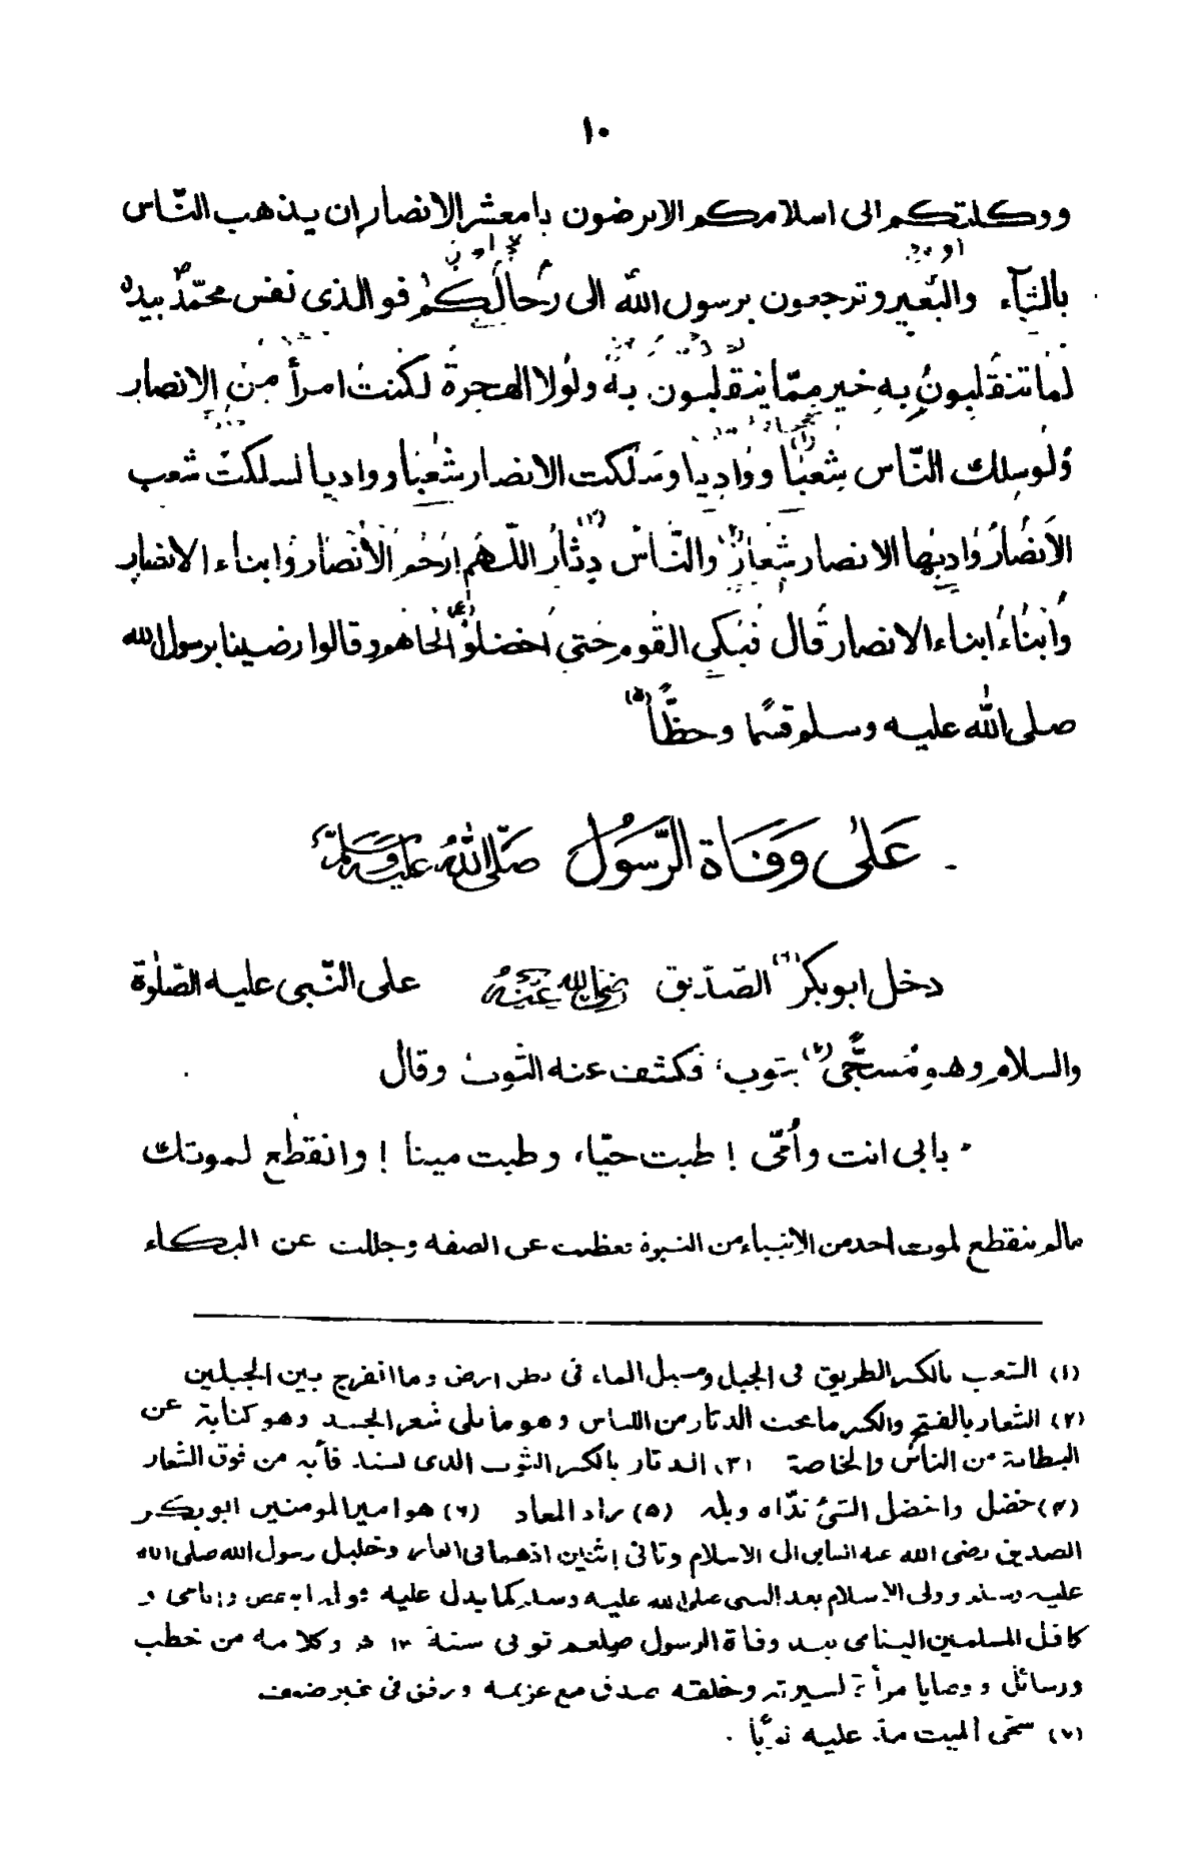 ١٠
ووكلتكم الى اسلامكم الا ترضون يا معشر الانصار ان يذهب النّاس
بالشآء والبَعير وترجعون برسول الله الى رُحالِكُم فو الذى نفس محمّدٌ بيده
لما تنقَلبونُ بهِ خير ممّا ينقَلبون بهُ ولَولا الهجرةُ لكنتُ امرأ مِنَ الانصار
وُلَوسلك النّاس شِعبًا (١) ووَاديا وسَلكت الانصار شعْبًا وواديا لسلكتُ شعب
الاَنصُارُ وَاديهَا الانصار شِعَارٌ (٢) والنّاسُ دِثارُ (٣) اللّهُم ارَحُم الأنصَار وَابناء الانصار
وَابنُاءُ ابناء الانصار قَال فبَكى القَوم حَتى اَخضلوْا (٤) لحَاهم وقالوا رضينا برسول الله
صلى الله عليه وسلم قسمًا وحظًّا (٥)
عَلىٰ وَفَاة الرَّسَوُل صَلّى اللهُ عَليْهِ وَسَلَّم
دخل ابوبكر (٦) الصّدّيق رَضِيَ اللهُ عَنْهُ على النّبى عليه الصّلوٰة
والسلام وهو مُسجًّى (٧) بثوب، فكشف عنه الثوب وقال
بابى انت وأُمّى ! طبت حيّا، وطبت ميتا ! وانقطع لموتك
مالم ينقطع لموت احد من الانبياء من النبوة فعظمت عن الصفه وجللت عن البكاء
(١) الشعب بالكسر الطريق فى الجبل ومسيل الماء فى بطن ارض وما انفرج بين الجبلين
(٢) الشعار بالفتح والكسر ماتحت الدثار من اللباس وهو ما يلى شعر الجسد وهو كناية عن
البطانة من الناس والخاصة (٣) الدثار بالكسر الثوب الذى فوق الشعار
(٤) خضل واخضل الشئ ندّاه وبله (٥) زاد المعاد (٦) هو امير المومنين ابوبكر
الصديق رضى الله عنه السابق الى الاسلام وثانى اثنين اذهما فى الغار وخليل رسول الله صلى الله
عليه وسلم وولى الاسلام بعد النبى صلى الله عليه وسلم كما يدل عليه قوله و
كافل المسلمين اليتامى بعد وفاة الرسول صلعم توفى سنة ١٣ ھ وكلامه من خطب
ورسائل ووصايا مرأة لسيرته وخلقه صدق مع عزيمه ورفق فى غير ضعف
(٧) سجّى الميت مدّ عليه ثوبًا .